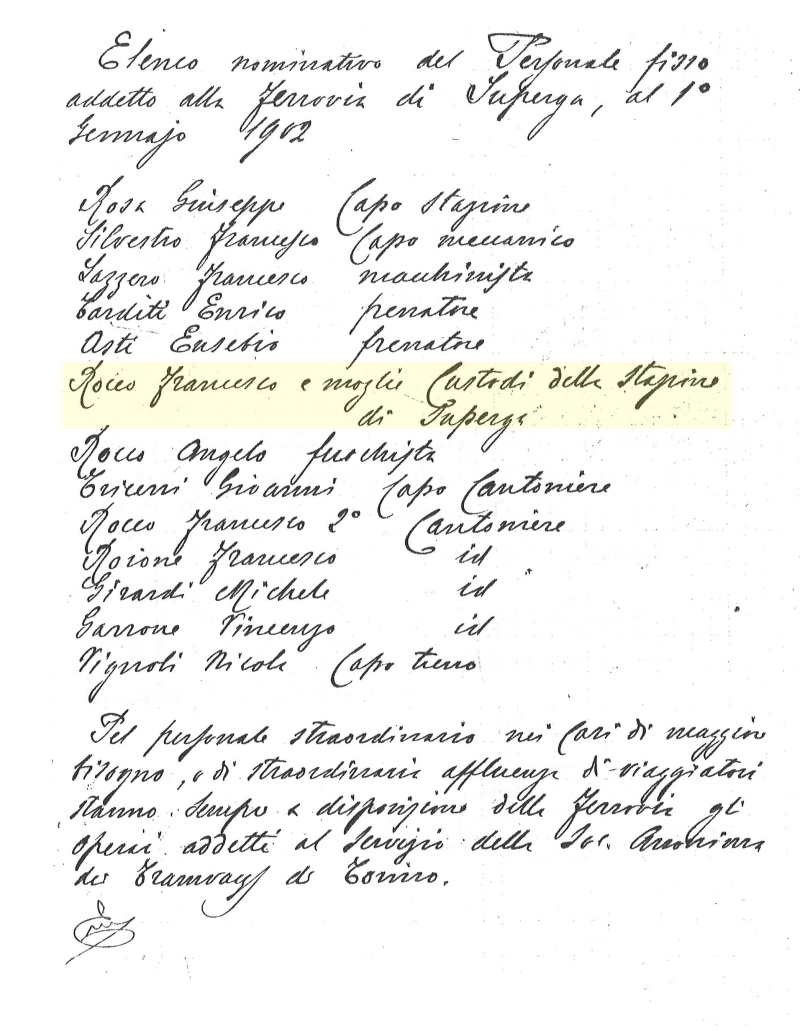 Elenco nominativo del Personale fisso
addetto alla Ferrovia di Superga, al 1°
Gennajo 1902
Rosa Giuseppe Capo Stazione
Silvestro Francesco Capo meccanico
Lazzero Francesco macchinista
Tarditi Enrico frenatore
Asti Eusebio frenatore
Rocco Francesco e moglie Custodi della Stazione
di Superga
Rocco Angelo fuochista
Tricerri Giovanni Capo Cantoniere
Rocco Francesco 2° Cantoniere
Roione Francesco id
Girardi Michele id
Garrone Vincenzo id
Vignoli Nicola Capo treno
Pel personale straordinario nei Casi di maggior
bisogno, o di straordinaria affluenza di viaggiatori
stanno sempre a disposizione della Ferrovia gli
operai addetti al Servizio della Soc. Anonima
dei Tramways di Torino.